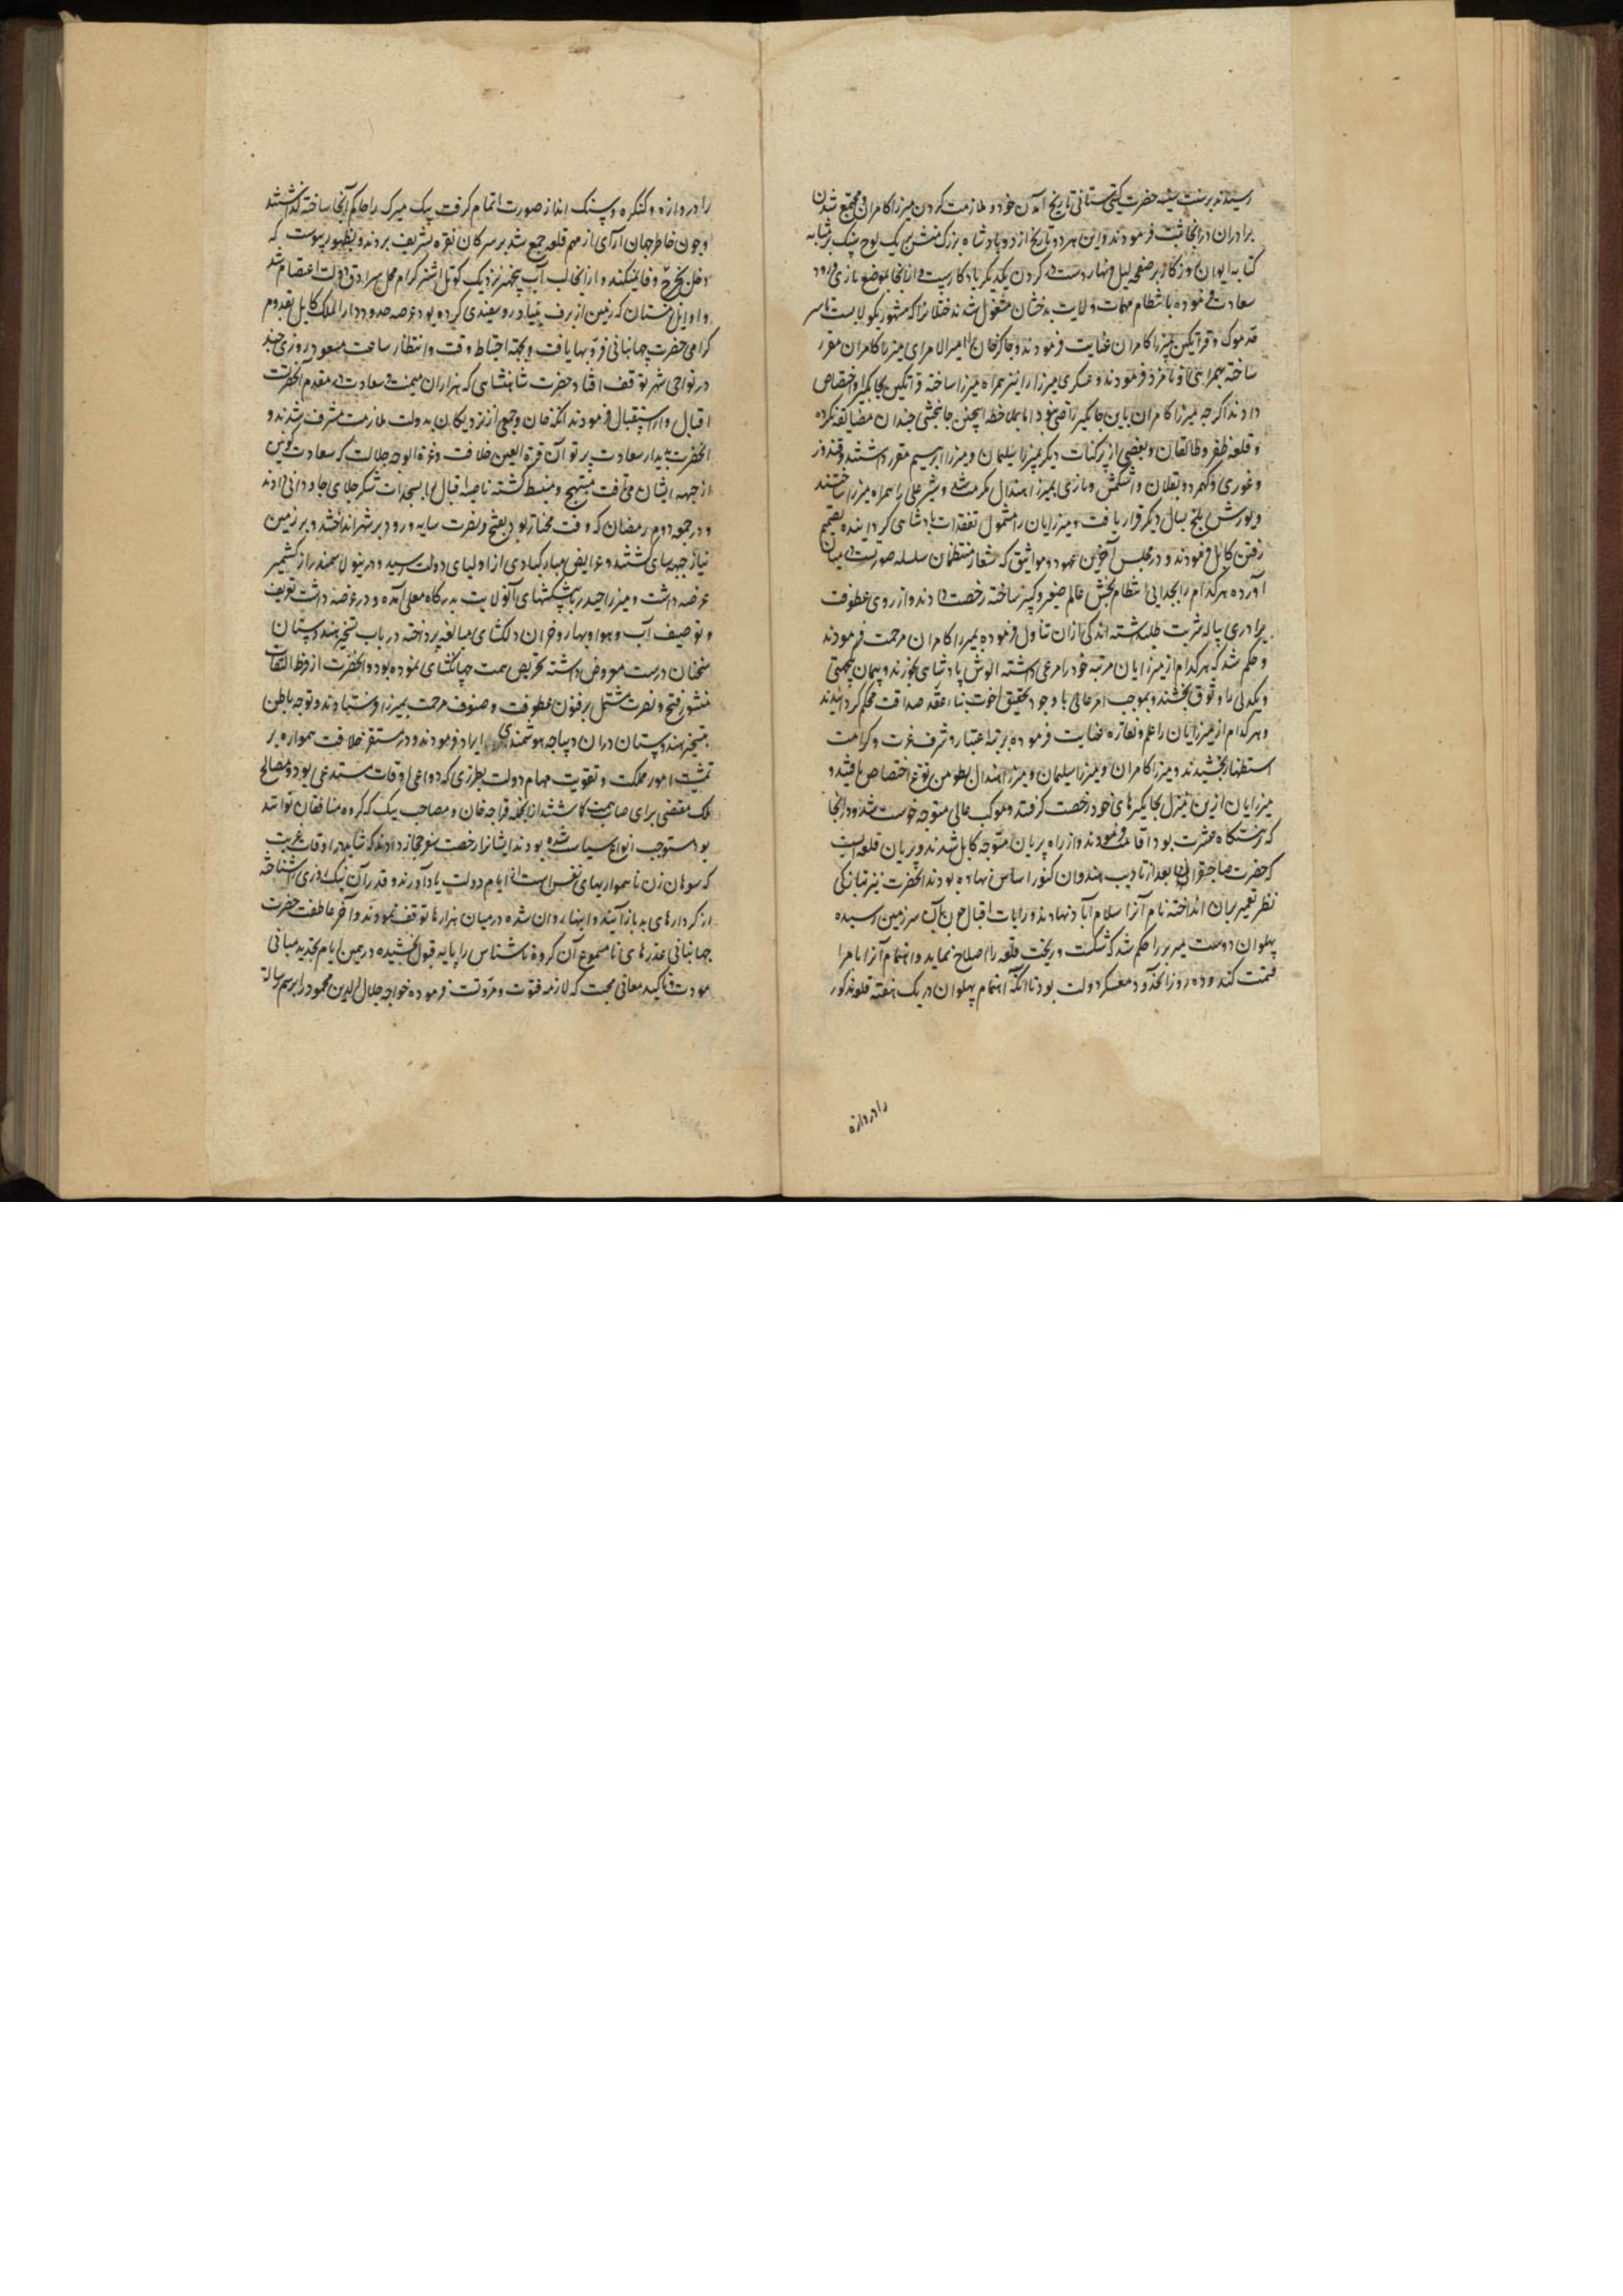 رسیدند برسنت سنیه حضرت گیتی ستانی تاریخ آمدن خود و ملازمت کردن میرزا کامران و مجتمع شدن
برادران در انجا ثبت فرمودند و این هر دو تاریخ از دو پادشاه بزرک منش بر یک لوح سنک بمثابه
کتابه ایوان روزکار بر صفحه لیل و نهار دست کردن یکدیکر یادکاریست و از انجا بموضع ناری ورود
سعادت فرموده بانتظام مهمات ولایت بدخشان مشغول شدند ختلانرا که مشهور بکولابست تا سر
قدموک و قراتکین بمیرزا کامران عنایت فرمودند و چاکر خان را امیرالامرای میرزا کامران مقرر
ساخته بهمراهی او نامزد فرمودند و عسکری میرزا را نیز همراه میرزا ساخته قراتکین بجایکیر او اختصاص
دادند اکرچه میرزا کامران باین جایکیر راضی نبود اما بملاحظه اینچنین جانبخشی چندان مضایقه نکرده
و قلعه ظفر و طالقان و بعضی از پرکنات دیکر بمیرزا سلیمان و میرزا ابرهیم مقرر داشتند و قندوز
و غوری و کهمرد و بقلان و اشکمش و ناری بمیرزا هندال مکرمت شد و شیر علی را همراه میرزا ساختند
و یورش بلخ بسال دیکر قرار یافت و میرزایان را مشمول تفقدات پادشاهی کردانیده تصمیم
رفتن کابل فرمودند و در مجلس آخرین عهود و مواثیق که شعار منتظمان سلسله صورتست در میان
آورده هرکدام را بخدایی انتظام بخش عالم صغیر و کبیر ساخته رخصت دادند و از روی عطوفت
برادری پیاله شربت طلب داشته اندکی ازان تناول فرموده بمیرزا کامران مرحمت فرمودند
و حکم شد که هرکدام از میرزایان مرتبه خود را مرعی داشته الوش پادشاهی بخورند و پیمان یکجهتی
و یکدلی را وثوق بخشند و بموجب امر عالی با وجود تحقیق اخوت بناء عقد صداقت محکم کردانیدند
و هرکدام از میرزایان را علم و نقاره عنایت فرموده برتبه اعتبار و شرف عزت و کرامت
استظهار بخشیدند و میرزا کامران و میرزا سلیمان و میرزا هندال بطومن توغ اختصاص یافتند و
میرزایان ازین منزل بجایکیرهای خود رخصت کرفتند و موکب عالی متوجه خوست شد و در انجا
که نزهتکاه عشرت بود اقامت فرمودند و از راه پریان متوجه کابل شدند و پریان قلعه ایست
که حضرت صاحبقرانی بعد از تادیب هندوان کتور اساس نهاده بودند انحضرت نیز بتازکی
نظر تعمیر بران انداخته نام آنرا اسلام آباد نهادند و رایات اقبال چون بآن سرزمین رسیده
پهلوان دوست میر بر را حکم شد که شکست و ریخت قلعه را اصلاح نماید و اهتمام آنرا بامرا
قسمت کند و ده روز انحدود معسکر دولت بود تا آنکه باهتمام پهلوان در یک هفته قلعه مذکور
را دروازه
را دروازه و کنکره و سنک انداز صورت اتمام کرفت بیک میرک را حاکم آنجا ساخته کذاشتند
و چون خاطر جهان آرای از مهم قلعه جمع شد بر سر کان نقره تشریف بردند و بظهور پیوست که
دخل بخرج وفا نمیکند و از انجا لب آب پنجهیر نزدیک کوتل اشترکرام محل سرادق دولت اعتصام شد
و اوایل زمستان که زمین از برف بنیاد رو سفیدی کرده بود عرصه حدود دارالملک کابل بقدوم
کرامی حضرت جهانبانی فر و بها یافت و بجهته احتیاط وقت و انتظار ساعت مسعود روزی چند
در نواحی شهر توقف افتاد حضرت شاهنشاهی که هزاران میمنت و سعادت در مقدم آنحضرتست
اقبال وار استقبال فرمودند اتکه خان و جمعی از نزدیکان بدولت ملازمت مشرف شدند و
آنحضرت بدیدار سعادت پرتو آن قرة العین خلافت و غرة الوجه جلالت که سعادت کونین
از جبهه ایشان می تافت مبتهج و منبسط کشته ناصیه اقبال را بسجدات شکر جلای جاودانی دادند
و در جمعه دوم رمضان که وقت مختار بود بفتح و نصرت سایه ورود بر شهر انداختند و بر زمین
نیاز جبهه سای کشتند و عرایض مبارکبادی از اولیای دولت رسید و درینولا سمندر از کشمیر
عرضه داشت و میرزا حیدر با پیشکشهای آنولایت بدرکاه معلی آمده و در عرضه داشت تعریف
و توصیف آب و هوا و بهار و خزان دلکشای مبالغه پرداخته در باب تسخیر هندوستان
سخنان درست معروض داشته تحریص همت جهانکشای نموده بود و آنحضرت از فرط التفات
منشور فتح و نصرت مشتمل بر فنون عطوفت و صنوف مرحمت بمیرزا فرستادند و توجه باطن
بتسخیر هندوستان دران دیباجه هوشمندی ایراد فرمودند و در مستقر خلافت همواره بر
تمشیت امور مملکت و تقویت مهام دولت بطرزی که دواعی اوقات مستدعی بود و مصالح
ملک مقتضی برای صایب همت کماشتند ازانجمله قراجه خان و مصاحب بیک که کروه منافقان توانند
بود مستوجب انواع سیاست شده بودند ایشانرا رخصت سفر حجاز دادند که شاید در اوقات غربت
که سوهان زن ناهمواریهای نفس است از ایام دولت یاد آورند و قدر آن نیک روزی را شناخته
از کردارهای بد باز آیند و اینها روان شده در میان هزارها توقف نمودند و آخر عاطفت حضرت
جهانبانی عذرهای نامسموع آن کروه ناشناس را پایه قبول بخشیده در همین ایام تجدید مبانی
مودت و تاکید معانی محبت که لازمه فتوت و مروتست فرموده خواجه جلال الدین محمود را برسم رسالت